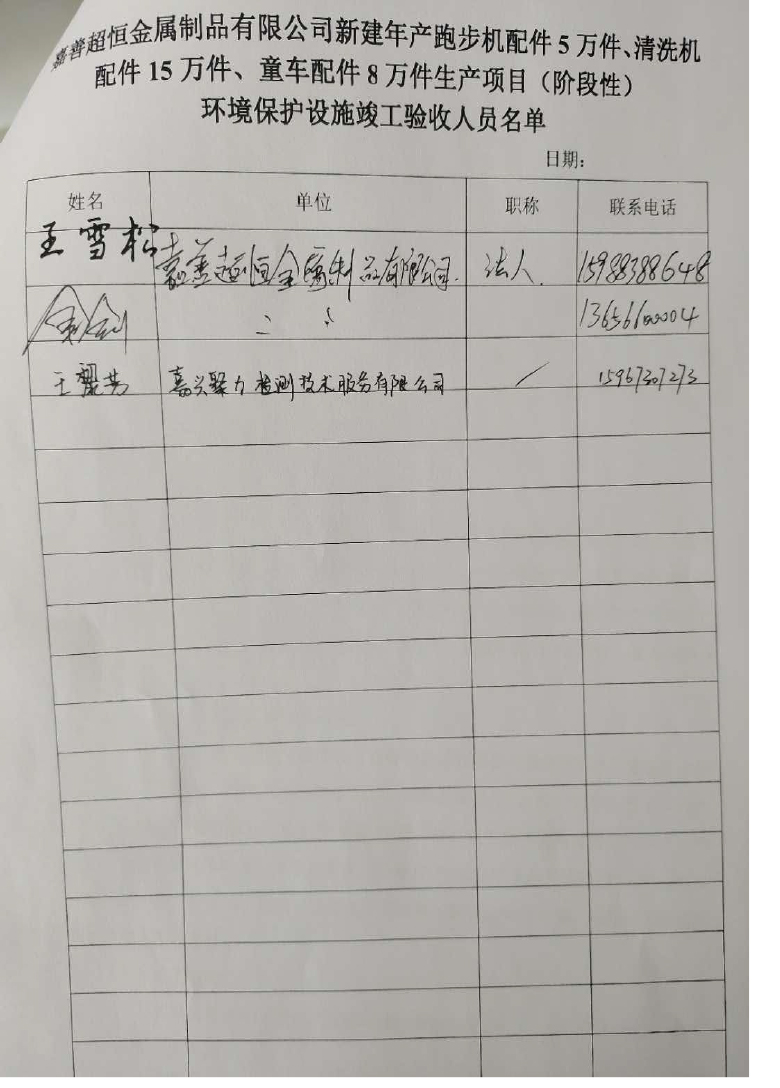 嘉善超恒金属制品有限公司新建年产跑步机配件5万件、清洗机
配件15万件、童车配件8万件生产项目（阶段性）
环境保护设施竣工验收人员名单
日期：
姓名 单位 职称 联系电话
王雪松 嘉善超恒金属制品有限公司. 法人. 15988388648
13656600004
王 嘉兴聚力检测技术服务有限公司 / 15967307273